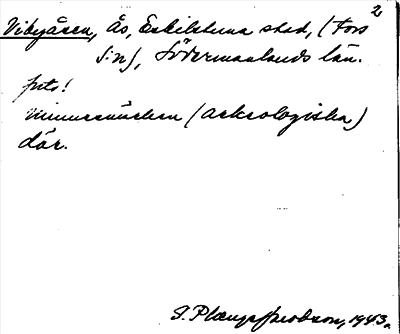 2
Vibyåsen, ås, Eskilstuna stad, (Fors
s:n), Södermanlands län.
foto!
minnesmärken (arkeologiska)
där.
S. Plænge Jacobson, 1943.